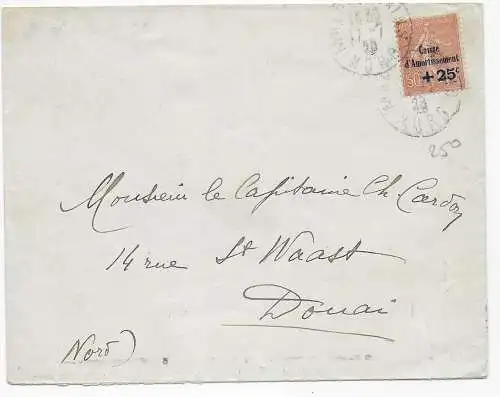 Caisse
d'Amortissement
+25c
50
250
Monsieur le Capitaine Ch. Cardon
14 rue St Waast
Douai
Nord)